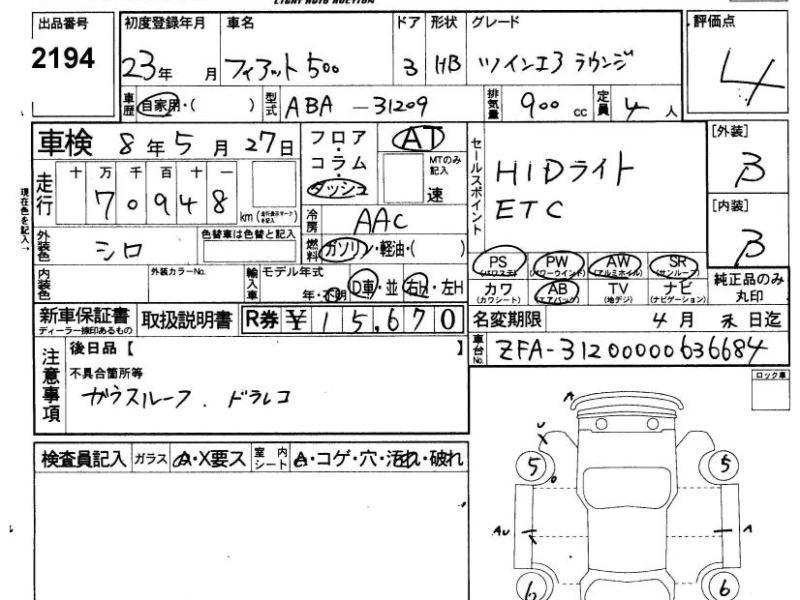 LIGHT AUTO AUCTION
出品番号 初度登録年月 車名 ドア 形状 グレード 評価点
2194 23年 月 フィアット500 3 HB ツインエア ラウンジ 4
車歴 自家用・( ) 型式 ABA-31209 排気量 900cc 定員 4人
車検 8年5月27日 フロア・コラム・ダッシュ AT MTのみ記入 速
セールスポイント HIDライト
ETC
[外装] B
[内装] B
現在色を記入→
走行 十万千百十一 70948 km (走行表示マークを記入)
冷房 AAC
外装色 シロ 色替車は色替と記入 燃料 ガソリン・軽油・( )
PS (パワステ) PW (パワーウインド) AW (アルミホイル) SR (サンルーフ)
カワ (カワシート) AB (エアバッグ) TV (地デジ) ナビ (ナビゲーション)
純正品のみ丸印
内装色 外装カラーNo. 輸入車 モデル年式 年・不明 D車・並 右H・左H
新車保証書 ディーラー捺印あるもの 取扱説明書 R券 ¥15,670 名変期限 4月末日迄
車台No. ZFA-31200000636684
注意事項 後日品【 】
不具合箇所等
ガラスルーフ. ドラレコ
ロック車
検査員記入 ガラス A・X要ス 室内シート A・コゲ・穴・汚れ・破れ
A
U
5 5
AU A
6 6